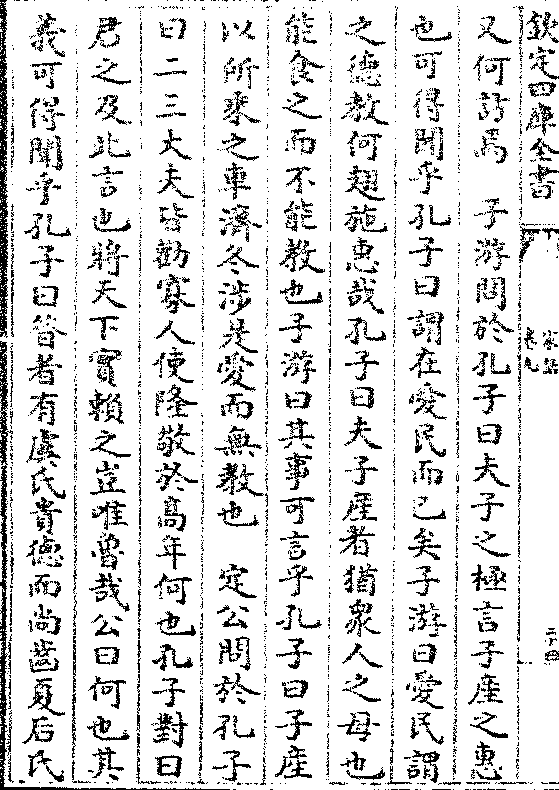 欽定四庫全書
又何訪焉　子游問於孔子曰夫子之極言子産之惠
也可得聞乎孔子曰謂在愛民而已矣子游曰愛民謂
之德教何翅施惠哉孔子曰夫子産者猶衆人之母也
能食之而不能教也子游曰其事可言乎孔子曰子産
以所乘之車濟冬涉是愛而無教也　定公問於孔子
曰二三大夫皆勸寡人使隆敬於高年何也孔子對曰
君之及此言也將天下實賴之豈唯魯哉公曰何也其
義可得聞乎孔子曰昔者有虞氏貴德而尚齒夏后氏